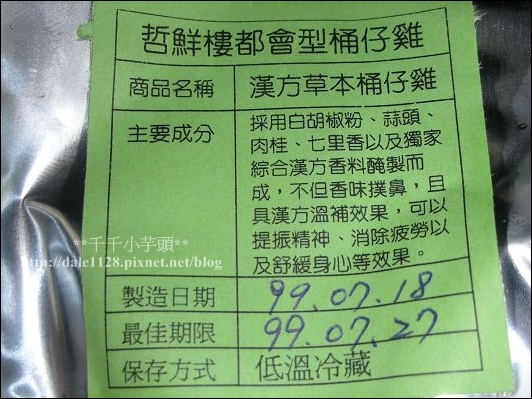 哲鮮樓都會型桶仔雞
商品名稱 漢方草本桶仔雞
主要成分 採用白胡椒粉、蒜頭、
肉桂、七里香以及獨家
綜合漢方香料醃製而
成，不但香味撲鼻，且
具漢方溫補效果，可以
提振精神、消除疲勞以
及舒緩身心等效果。
**千千小芋頭**
http://dale1128.pixnet.net/blog
製造日期 99.07.18
最佳期限 99.07.27
保存方式 低溫冷藏